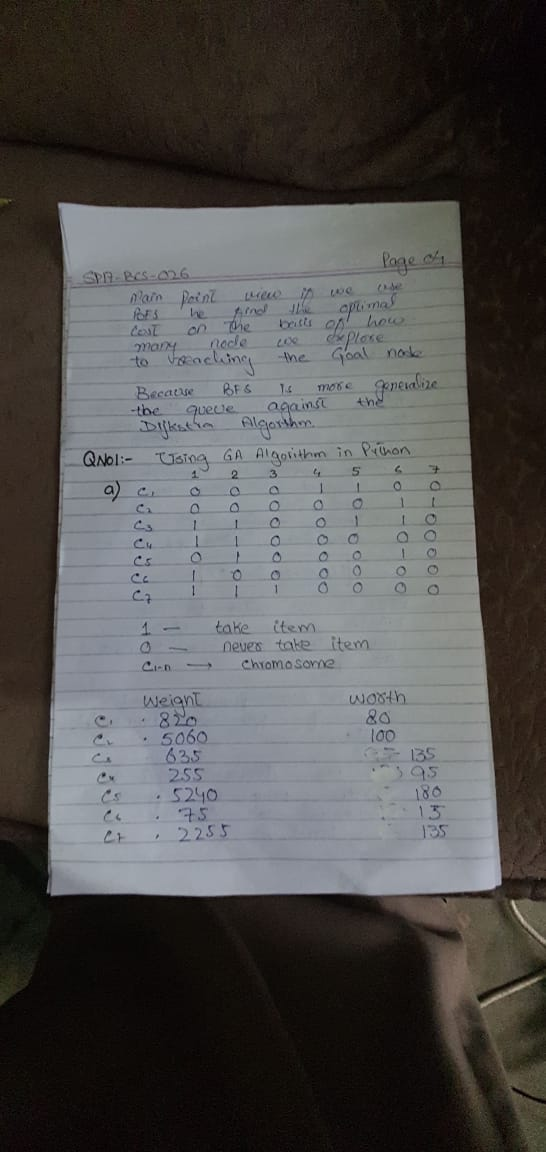 Page 04
SPA-BCS-026
Main Point view if we use
BFS he find the optimal
Cost on the basis of how
many node we explore
to reaching the Goal node
Because BFS is more generalize
the queue against the
Dijkstra Algorthm.
QNo1:- Using GA Algorithm in Python
1 2 3 4 5 6 7
a) C1 0 0 0 1 1 0 0
C2 0 0 0 0 0 1 1
C3 1 1 0 0 1 1 0
C4 1 1 0 0 0 0 0
C5 0 1 0 0 0 1 0
C6 1 0 0 0 0 0 0
C7 1 1 1 0 0 0 0
1 — take item
0 — never take item
C1-n → Chromosome
Weight Worth
C1 . 820 80
C2 . 5060 100
C3 635 135
C4 255 95
C5 . 5240 180
C6 . 75 15
C7 , 2255 135